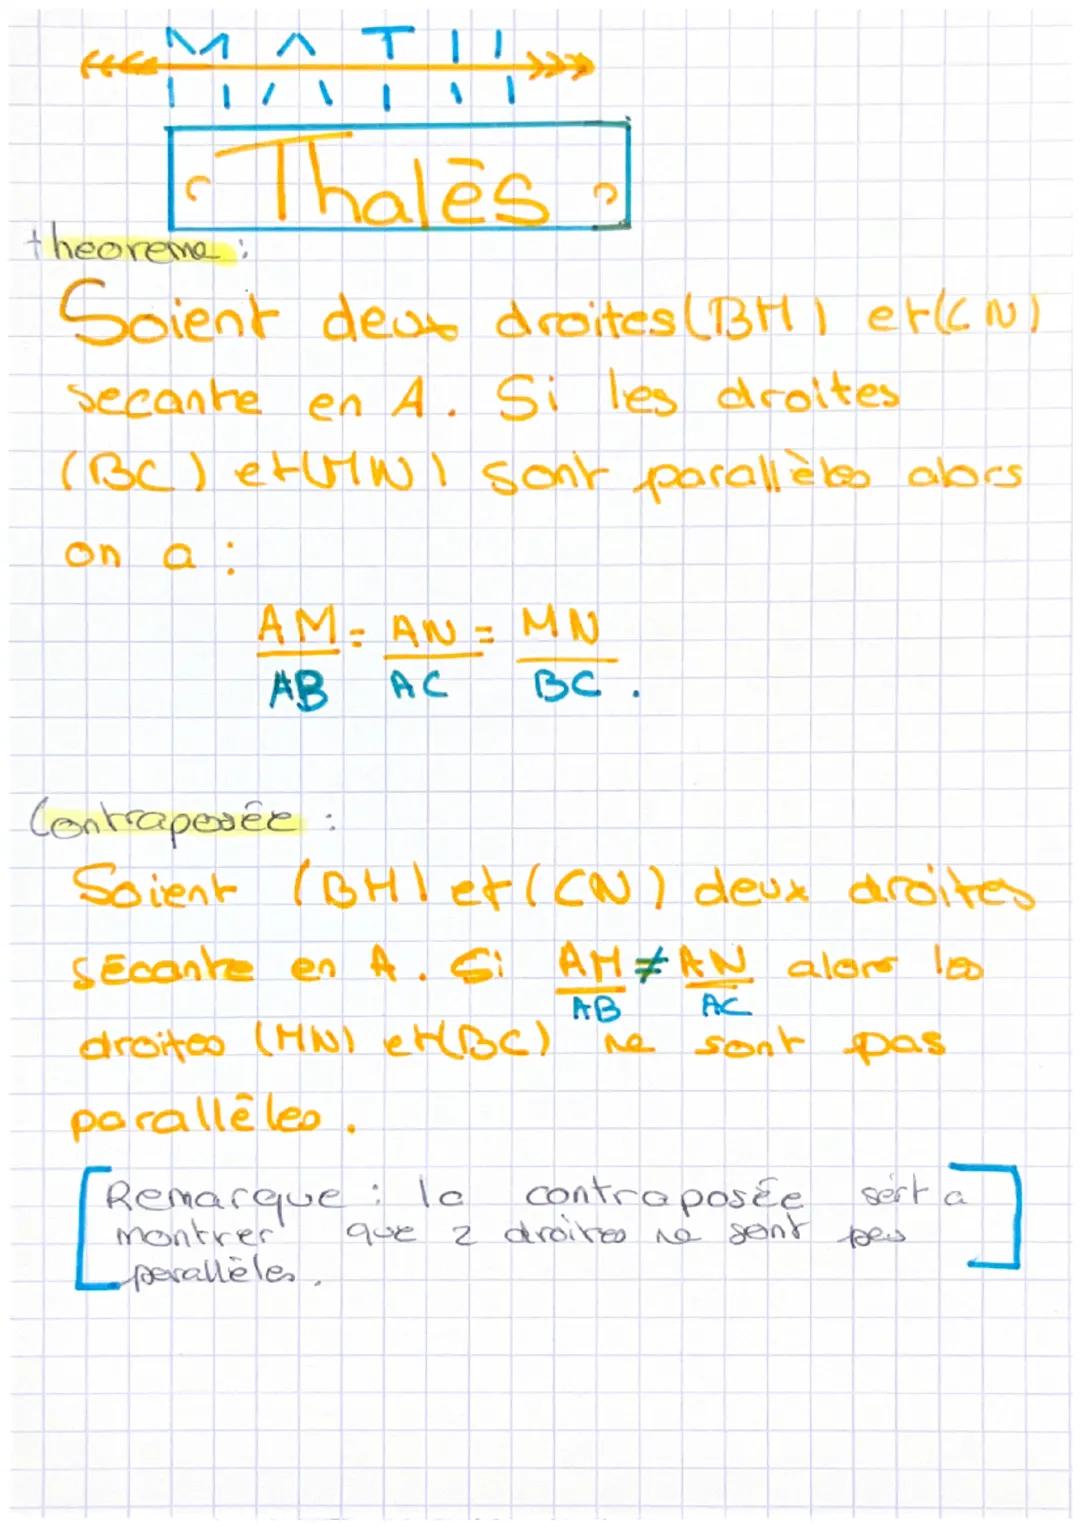 MATH
Thalēs
theoreme :
Soient deux droites (BM) et (CN)
secante en A. Si les droites
(BC) et (MN) sont parallèles alors
on a :
AM = AN = MN
AB AC BC .
Contraposée :
Soient (BM) et (CN) deux droites
sécante en A. Si AM ≠ AN alors les
AB AC
droites (MN) et (BC) ne sont pas
parallêles.
Remarque : la contraposée sert a
montrer que 2 droites ne sont pas
parallèles.